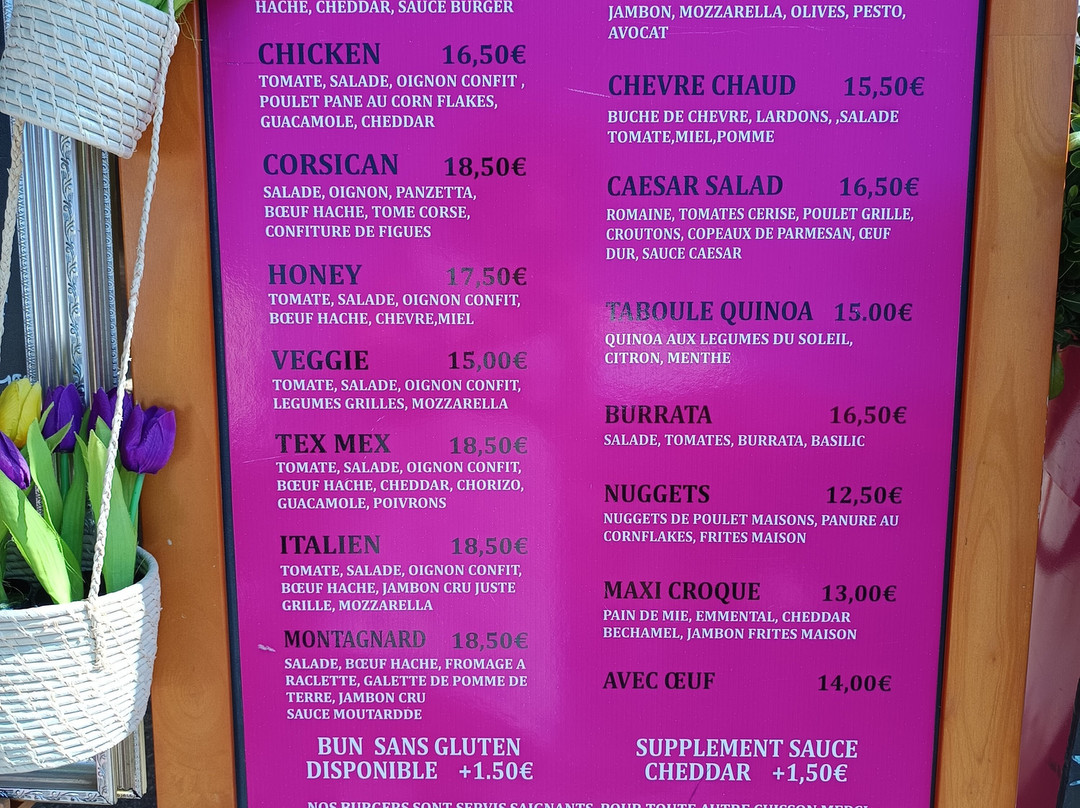 HACHE, CHEDDAR, SAUCE BURGER
CHICKEN 16,50€
TOMATE, SALADE, OIGNON CONFIT ,
POULET PANE AU CORN FLAKES,
GUACAMOLE, CHEDDAR
CORSICAN 18,50€
SALADE, OIGNON, PANZETTA,
BŒUF HACHE, TOME CORSE,
CONFITURE DE FIGUES
HONEY 17,50€
TOMATE, SALADE, OIGNON CONFIT,
BŒUF HACHE, CHEVRE,MIEL
VEGGIE 15,00€
TOMATE, SALADE, OIGNON CONFIT,
LEGUMES GRILLES, MOZZARELLA
TEX MEX 18,50€
TOMATE, SALADE, OIGNON CONFIT,
BŒUF HACHE, CHEDDAR, CHORIZO,
GUACAMOLE, POIVRONS
ITALIEN 18,50€
TOMATE, SALADE, OIGNON CONFIT,
BŒUF HACHE, JAMBON CRU JUSTE
GRILLE, MOZZARELLA
MONTAGNARD 18,50€
SALADE, BŒUF HACHE, FROMAGE A
RACLETTE, GALETTE DE POMME DE
TERRE, JAMBON CRU
SAUCE MOUTARDDE
BUN SANS GLUTEN
DISPONIBLE +1.50€
JAMBON, MOZZARELLA, OLIVES, PESTO,
AVOCAT
CHEVRE CHAUD 15,50€
BUCHE DE CHEVRE, LARDONS, ,SALADE
TOMATE,MIEL,POMME
CAESAR SALAD 16,50€
ROMAINE, TOMATES CERISE, POULET GRILLE,
CROUTONS, COPEAUX DE PARMESAN, ŒUF
DUR, SAUCE CAESAR
TABOULE QUINOA 15.00€
QUINOA AUX LEGUMES DU SOLEIL,
CITRON, MENTHE
BURRATA 16,50€
SALADE, TOMATES, BURRATA, BASILIC
NUGGETS 12,50€
NUGGETS DE POULET MAISONS, PANURE AU
CORNFLAKES, FRITES MAISON
MAXI CROQUE 13,00€
PAIN DE MIE, EMMENTAL, CHEDDAR
BECHAMEL, JAMBON FRITES MAISON
AVEC ŒUF 14,00€
SUPPLEMENT SAUCE
CHEDDAR +1,50€
NOS BURGERS SONT SERVIS SAIGNANTS, POUR TOUTE AUTRE CUISSON MERCI